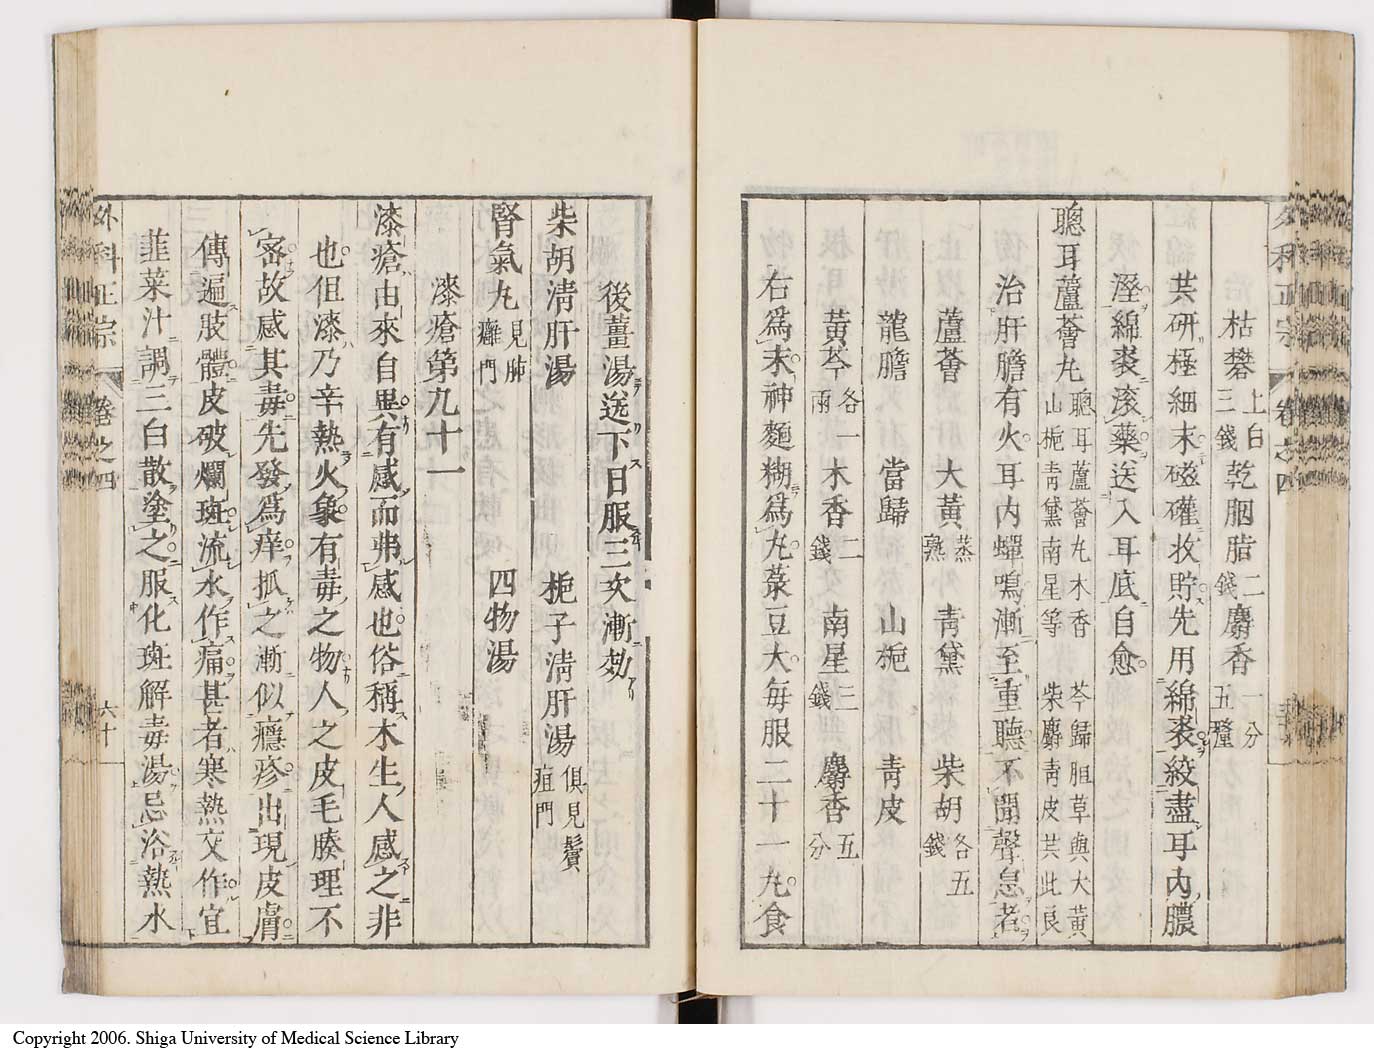 枯礬上白三錢乾胭脂二錢麝香一分五釐
共研極細末磁礶收貯先用綿裘絞盡耳內膿
溼綿裘滾藥送入耳底自愈
聰耳蘆薈丸聰耳蘆薈丸木香 芩歸胆草與大黃山梔靑黛南星等 柴麝靑皮共此良
治肝膽有火耳內蟬鳴漸至重聽不聞聲息者
蘆薈 大黃蒸熟 靑黛 柴胡各五錢
龍膽 當歸 山梔 靑皮
黃芩各一兩 木香二錢 南星三錢 麝香五分
右爲末神麯糊爲丸菉豆大每服二十一丸食
外科正宗 卷之四
後薑湯送下日服三次漸効
柴胡淸肝湯 梔子淸肝湯俱見鬢疽門
腎氣丸見肺癰門 四物湯
漆瘡第九十一
漆瘡由來自異有感而弗感也俗稱木生人感之非
也但漆乃辛熱火象有毒之物人之皮毛腠理不
密故感其毒先發爲痒抓之漸似癮疹出現皮膚
傳遍肢體皮破爛斑流水作痛甚者寒熱交作宜
韮菜汁調三白散塗之服化斑解毒湯忌浴熱水
外科正宗 卷之四 六十一
Copyright 2006. Shiga University of Medical Science Library